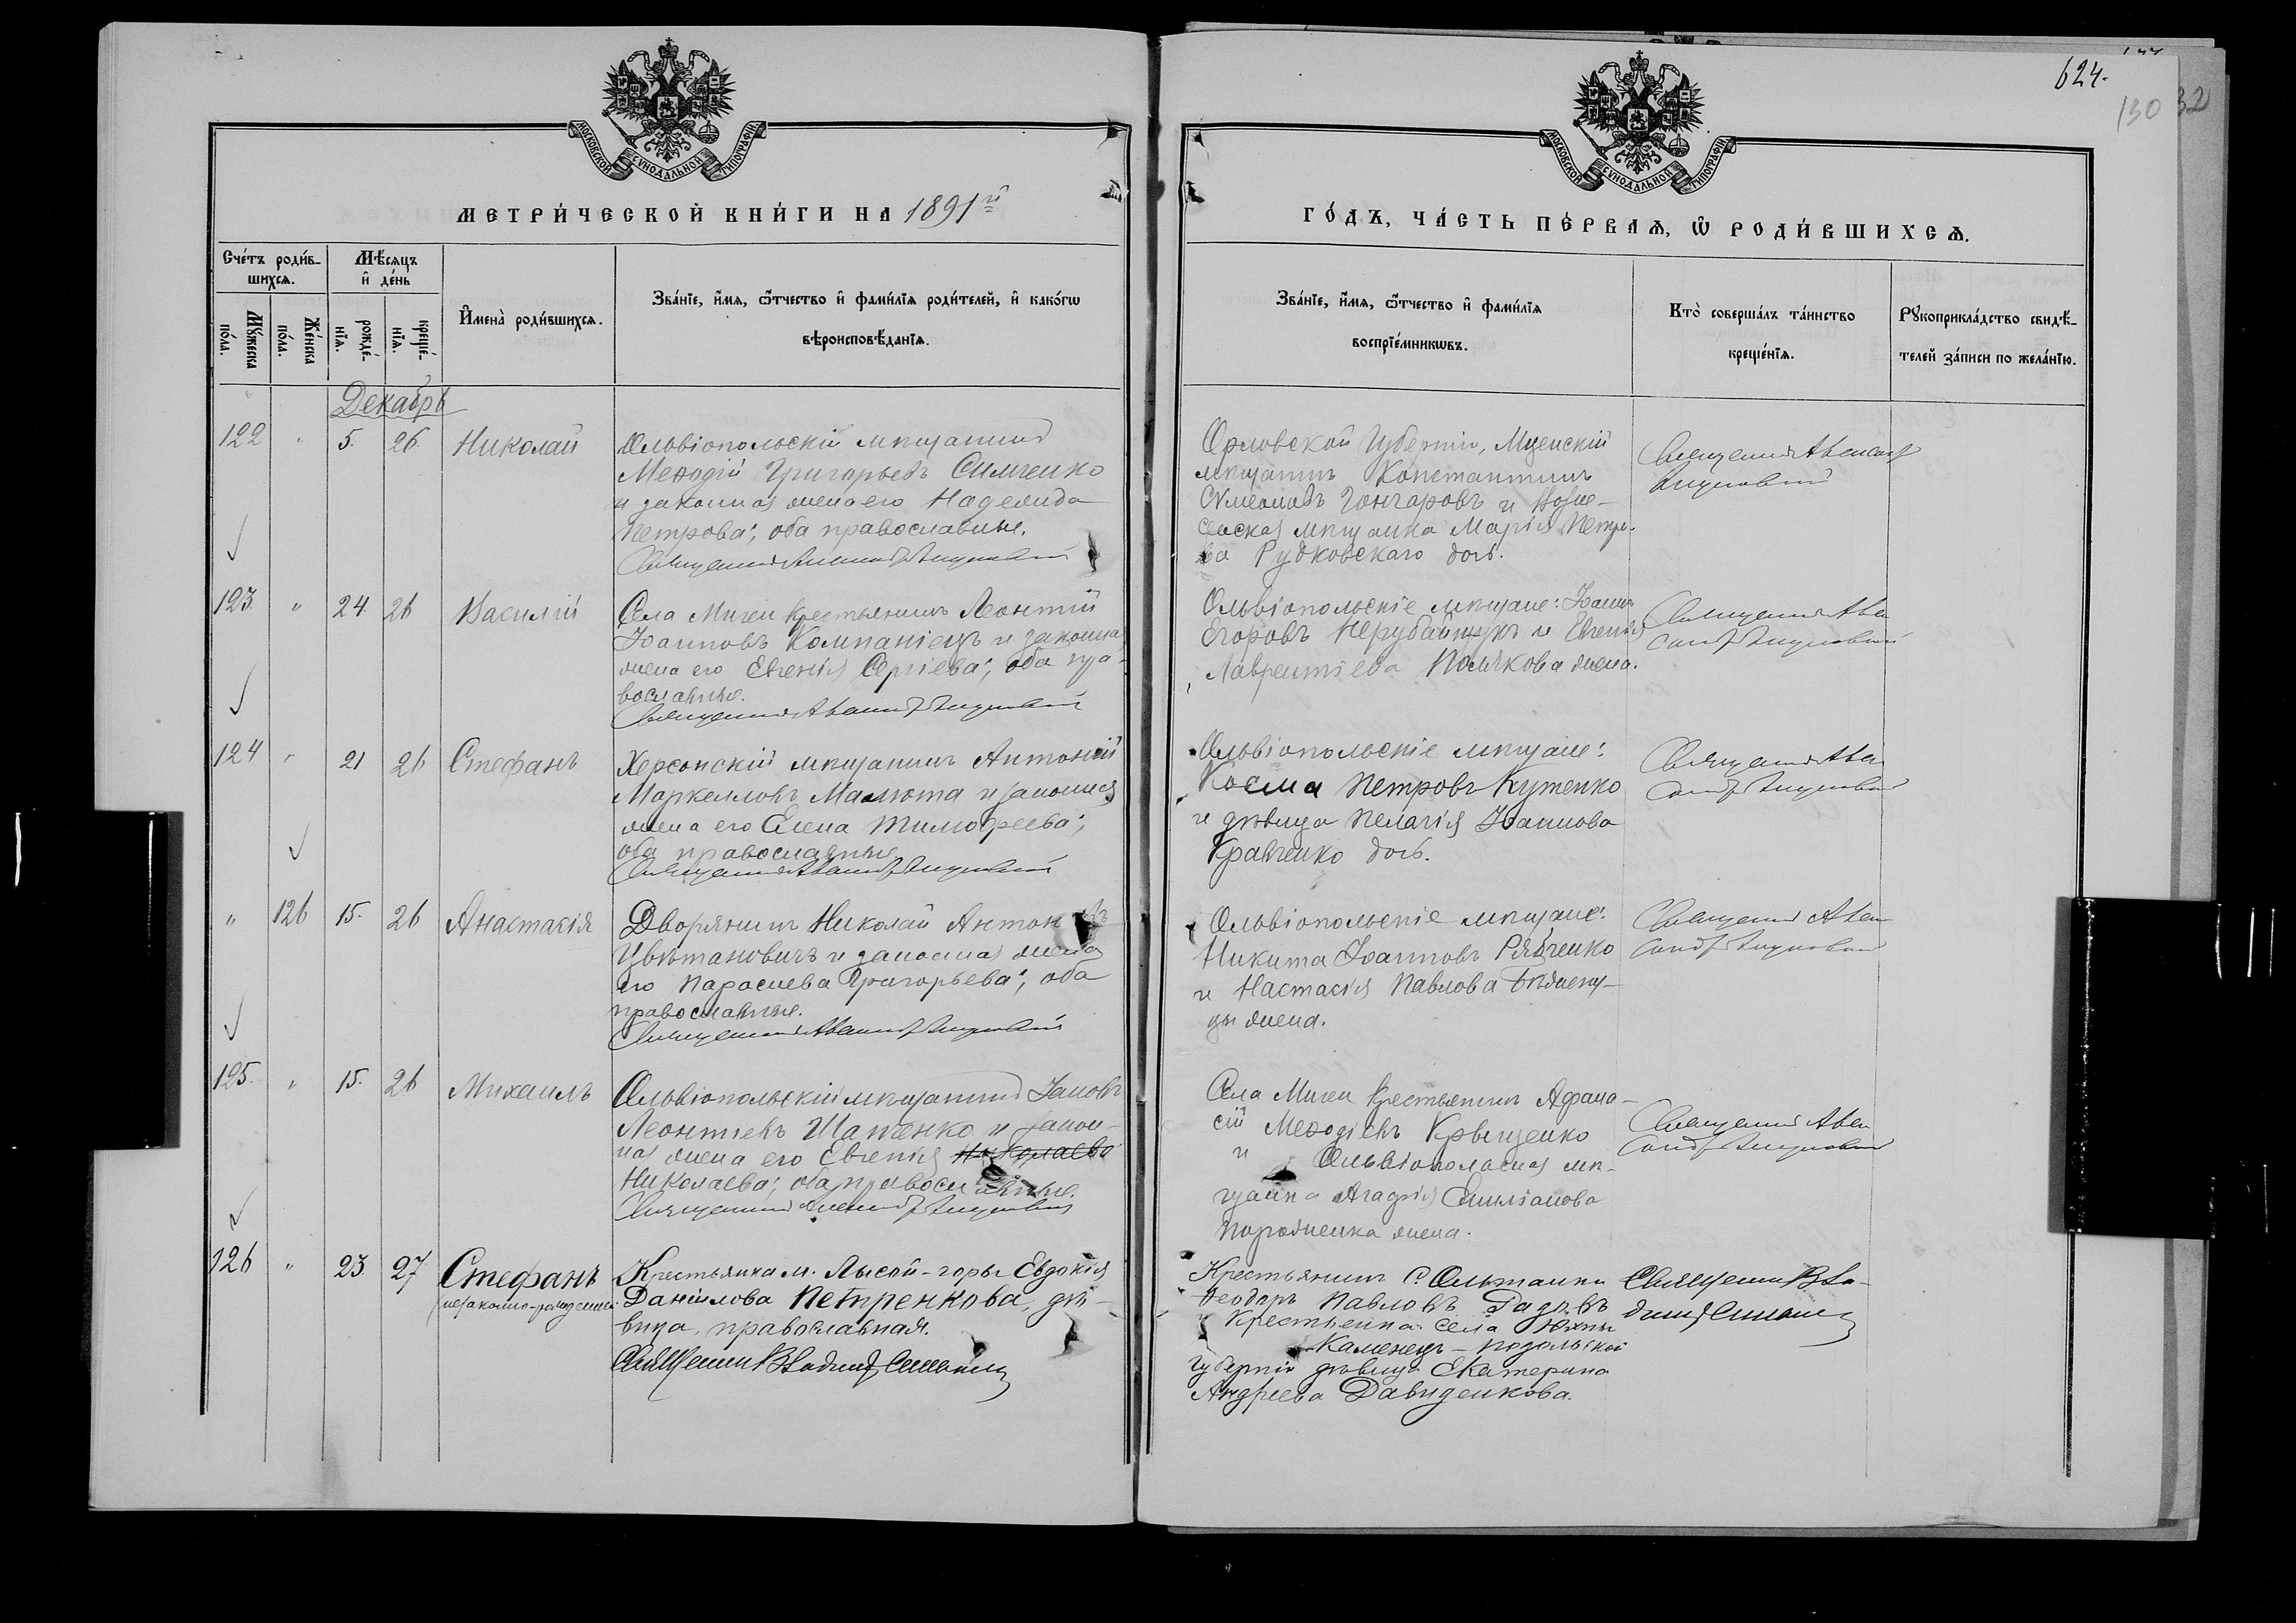 МОСКОВСКОЙ СѴНОДАЛЬНОЙ ТИПОГРАФІИ
МЕТРИ́ЧЕСКОЙ КНИ́ГИ НА 1891й
Сче́тъ роди́в-
шихсѧ.
Мѣ́сѧцъ
и҆ де́нь
Мꙋ́жеска
по́ла.
Же́нска
по́ла.
рожде́-
нїѧ.
креще́-
нїѧ.
И҆мена̀ роди́вшихсѧ.
Зва́нїе, и҆́мѧ, ѻ҆́тчество и҆ фами́лїѧ роди́телей, и҆ како́гѡ
вѣроисповѣ́данїѧ.
Декабрь
122 " 5. 26. Николай
Ольвіопольскій мѣщанинъ
Меѳодій Григорьевъ Симченко
и законная жена его Надежда
Петрова; оба православные.
123. " 24. 26 Василій
Села Мигеи крестьянинъ Леонтій
Іоанновъ Компаніецъ и законная
жена его Евгенія Сергіева; оба пра-
вославные.
124 " 21 26 Стефанъ
Херсонскій мѣщанинъ Антоній
Маркелловъ Малюта и законная
жена его Елена Тимоѳеева;
оба православные
" 126 15. 26 Анастасія
Дворянинъ Николай Антон въ
Цвѣтановичъ и законная жена
его Параскева Григорьева; оба
православные.
125. " 15. 26 Михаилъ
Ольвіопольскій мѣщанинъ Іаковъ
Леонтіевъ Шапенко и закон-
ная жена его Евгенія Николаева
Николаева; оба православные.
126 " 23. 27 Стефанъ
(незаконно-рожденный
Крестьянка м. Лысой-горы Евдокія
Даніилова Петренкова, дѣ-
вица, православная.
624.
130
32
МОСКОВСКОЙ СѴНОДАЛЬНОЙ ТИПОГРАФІИ
ГО́ДЪ, ЧА́СТЬ ПЕ́РВАѦ, Ѽ РОДИ́ВШИХСѦ.
Зва́нїе, и҆́мѧ, ѻ҆́тчество и҆ фами́лїѧ
воспрїе́мникѡвъ.
Кто̀ соверша́лъ та́инство
креще́нїѧ.
Рꙋкоприкла́дство свидѣ́-
телей за́писи по жела́нїю.
Орловской Губерніи, Мценскій
мѣщанинъ Константинъ
Сѵмеоновъ Гончаровъ и Возне-
сенская мѣщанка Марія Петро-
ва Рудковскаго дочь.
Священникъ Александръ
Ольвіопольскіе мѣщане: Іоаннъ
Егоровъ Нерубайщукъ и Евгенія
Лаврентіева Полякова жена.
Священникъ Алек
сандръ
Ольвіопольскіе мѣщане:
Косма Петровъ Кутенко
и дѣвица Пелагія Іоаннова
Кравченко дочь.
Священникъ Алек
сандръ
Ольвіопольскіе мѣщане:
Никита Іоанновъ Рябченко
и Настасія Павлова
жена.
Священникъ Алек
сандръ
Села Мигеи крестьянинъ Аѳана-
сій Меѳодіевъ Крыщенко
и Ольвіопольская мѣ-
щанка Агафія Емиліанова
жена.
Священникъ Алек
сандръ
Крестьянинъ С. Ольшанки
Ѳеодоръ Павловъ
и Крестьянка села
Каменецъ-Подольской
губерніи дѣвица Екатерина
Андреева Давиденкова.
Священникъ Вла-
диміръ